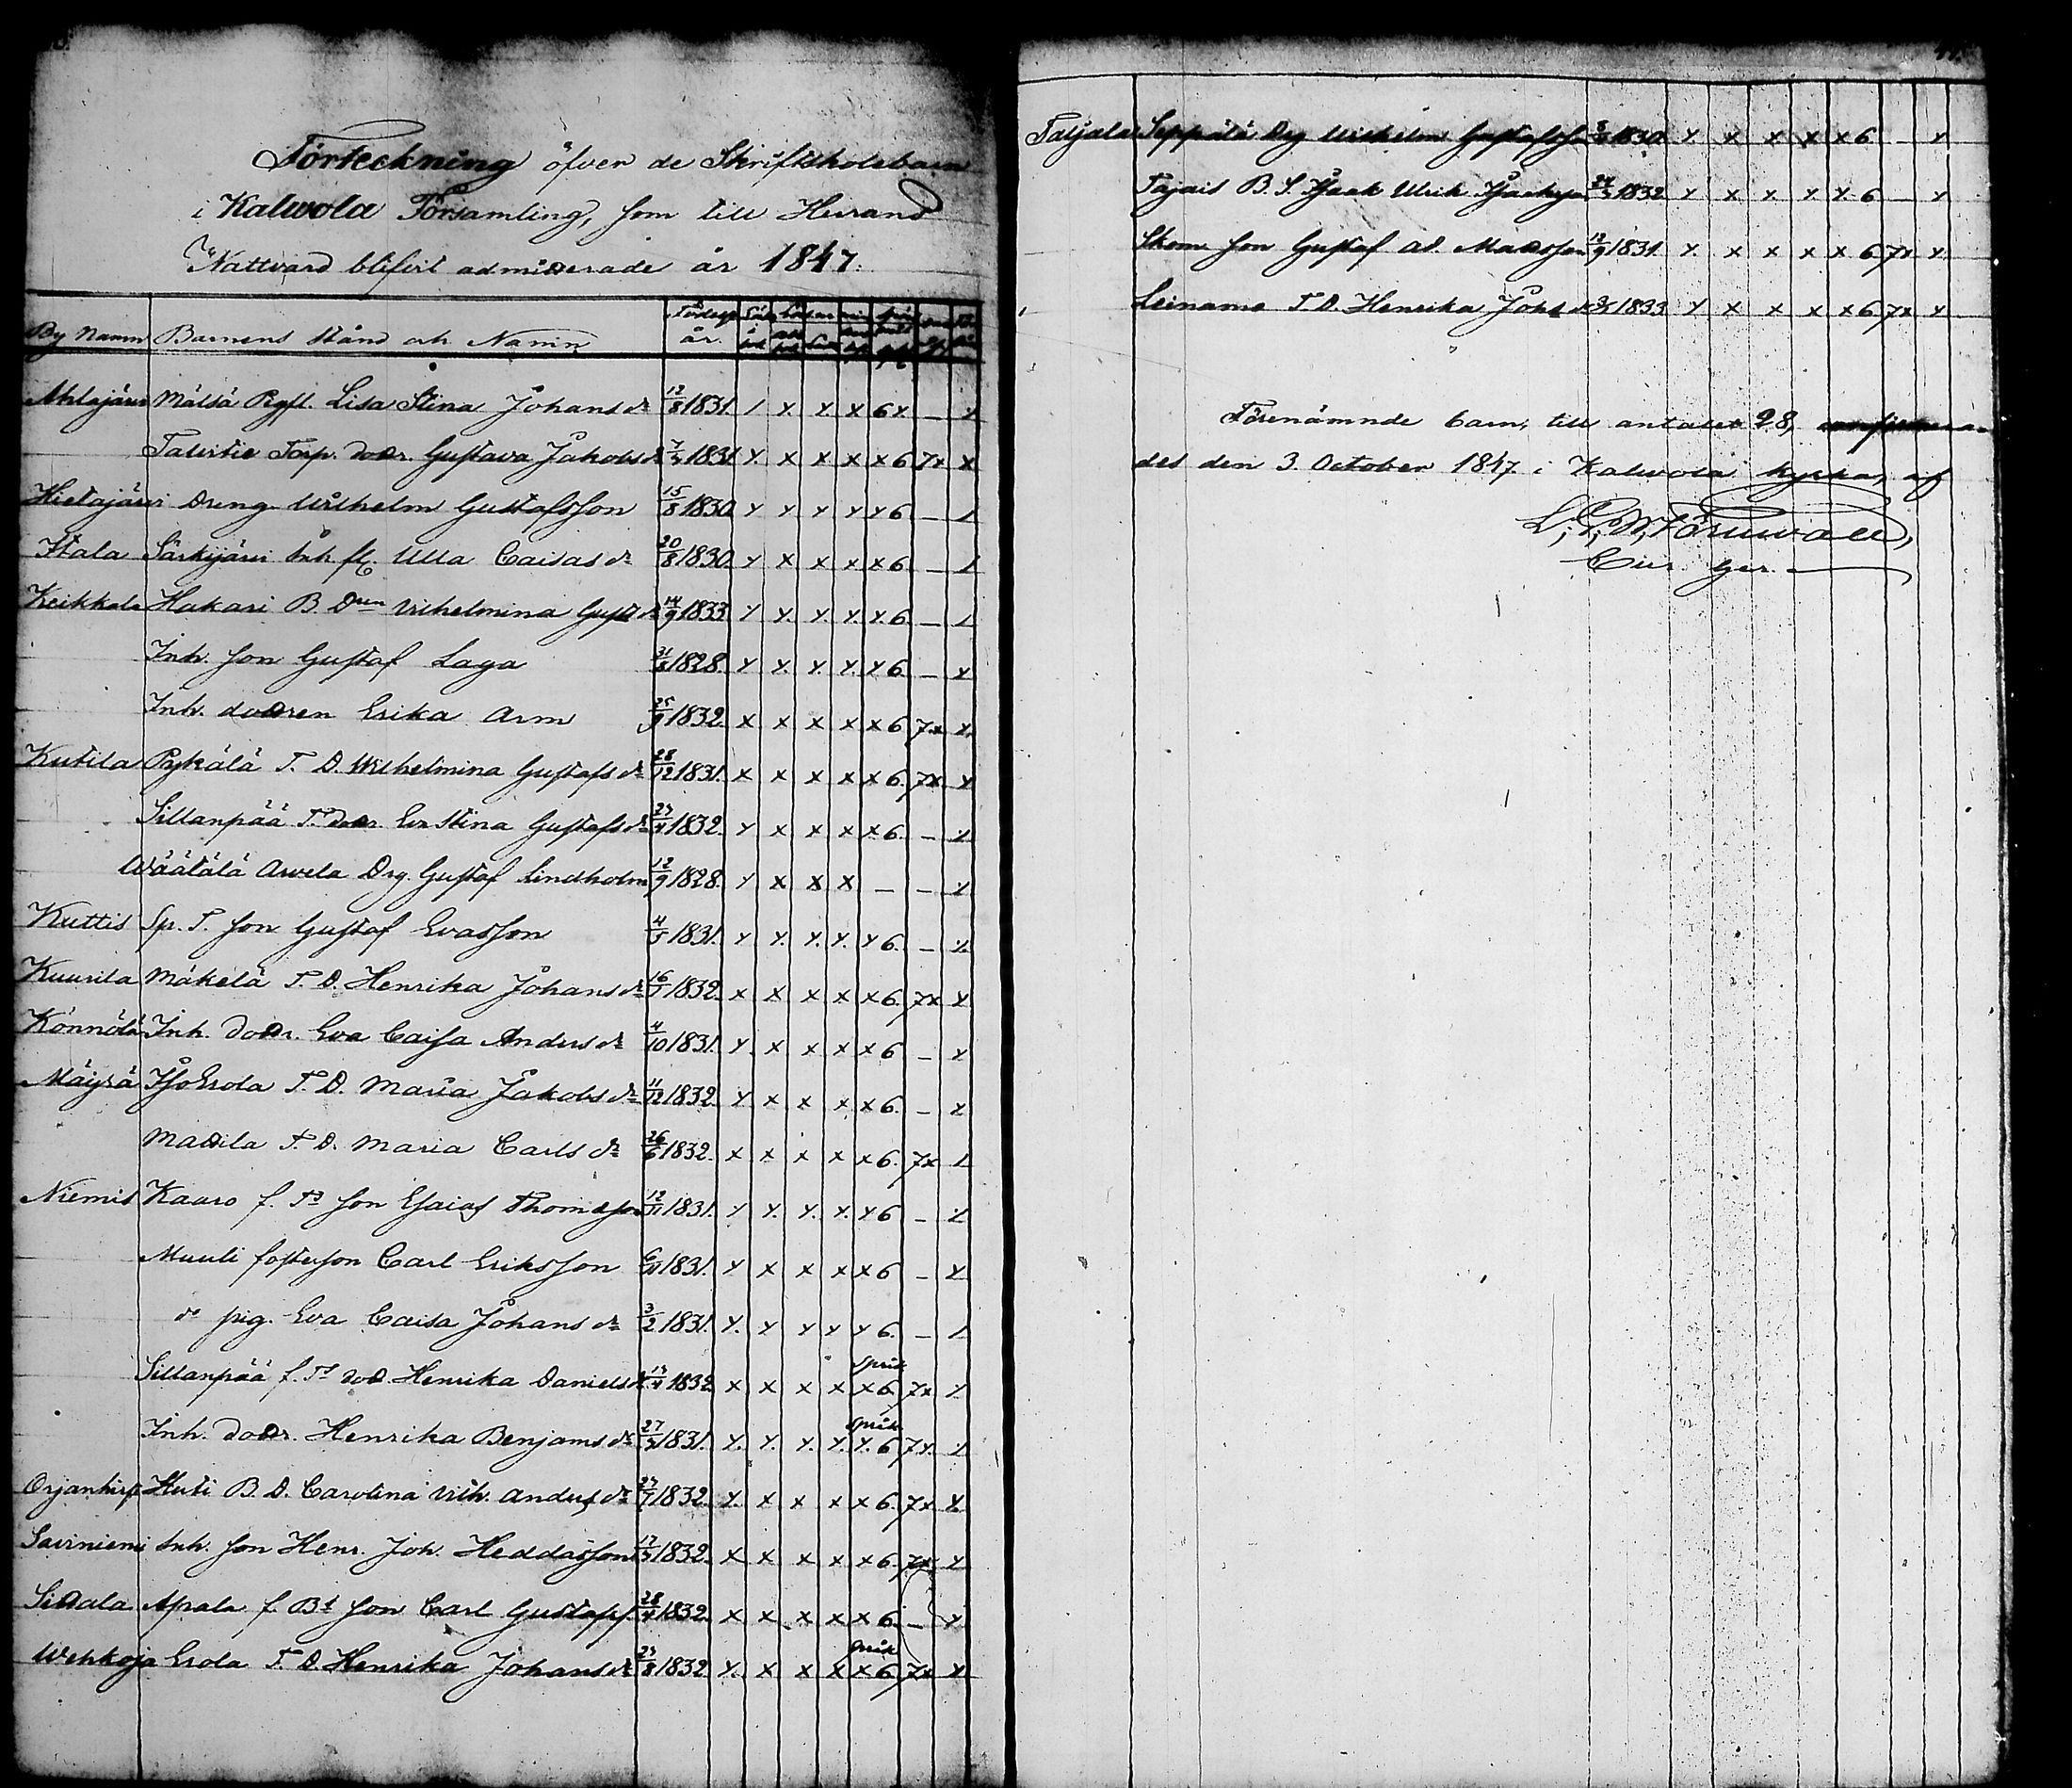 Förteckning öfver de Skriftskolebarn
i Kalwola Församling, som till Herrans
Nattvard blifvit admitterade år 1847.
By Namn Barnens Stånd och Namn Födelse år.
Ahlajärvi Mälsä Pigfl. Lisa Stina Johans dr 12/8 1831. / x x x 6 x — x
Talvitie Torp. dottr. Gustava Jakobs dr 1831 x x x x x 6 7x x
Hietajärvi Dreng Wilhelm Gustafsson 15/8 1830 x x x x x 6 — /
Ittala Särkijärvi Inh. fl. Ulla Caisas dr 20/8 1830. x x x x x 6 — /
Keikkala Hakari B. Dren Vilhelmina Gust. dr 14/9 1833 x x. x. x. x. 6. — /
Inh. Son Gustaf Laga 1828. x x. x. x. x 6. — x
Inh. dottren Erika Arm 25/9 1832. x x x x x 6 7x x.
Kutila Pykälä T. D. Wilhelmina Gustafs dr 28/12 1831. x x x x x 6. 7x x
Sillanpää Ts dottr. Eva Stina Gustafs dr 1832. x x x x x 6. — x
Wäätälä Arvela Drg. Gustaf Lindholm 12/9 1828. x x x x — — x
Kuttis Sp. T. Son Gustaf Evasson 4/5 1831. x x. x. x. x 6. — x
Kuurila Mäkelä T. D. Henrika Johans dr 1832. x x x x x 6. 7x x
Könnölä Inh. Dottr. Eva Caisa Anders dr 4/10 1831. x. x x x x 6 — x
Mäyrä Iso Erola T. D. Maria Jakobs dr 11/12 1832. x x x x x 6. — x
Mattila T. D. Maria Carls dr 26/6 1832. x x x x x 6. 7x /
Niemis Kaaro f. Ts Son Esaias Thomasson 12/11 1831. x x. x. x. x 6 — x
Muuli fosterson Carl Eriksson 1831. x x x x x 6 — x
do pig. Eva Caisa Johans dr 3/2 1831. x. x x x x 6. — /
Sillanpää f. Ts dott. Henrika Daniels dr 1832 x x x x x 6. 7x /
Inh. dottr. Henrika Benjams dr 1831. x. x. x. x. x. 6 7x. /
Orjanhirs Huti B. D. Carolina Vilh. Anders dr 1832. x. x x x x 6. 7x x.
Savniemi Inh. Son Henr. Joh. Heddasson 1832. x x x x x 6. 7x x
Sittala Apala f. Bs Son Carl Gustafss. 1832. x x x x x 6. — x
Wehkoja Erola T. D. Henrika Johans dr 1832 x. x x x x 6. 7x x
Taljala Seppälä Drg Wilhelm Gustafsson 1830 x. x x x x 6 — x
Tajais B. S. Isaak Ulrik Isacksson 1832 x x x x x 6 — x
Skom. Son Gustaf Ad. Mattsson 12/9 1831. x. x x x x 6 7x x
Leinamo T. D. Henrika Johs dr 1833 x x x x x 6 7x x
Förenämnde barn, till antalet 28, confirmera-
des den 3 October 1847 i Kalwola kyrka, af